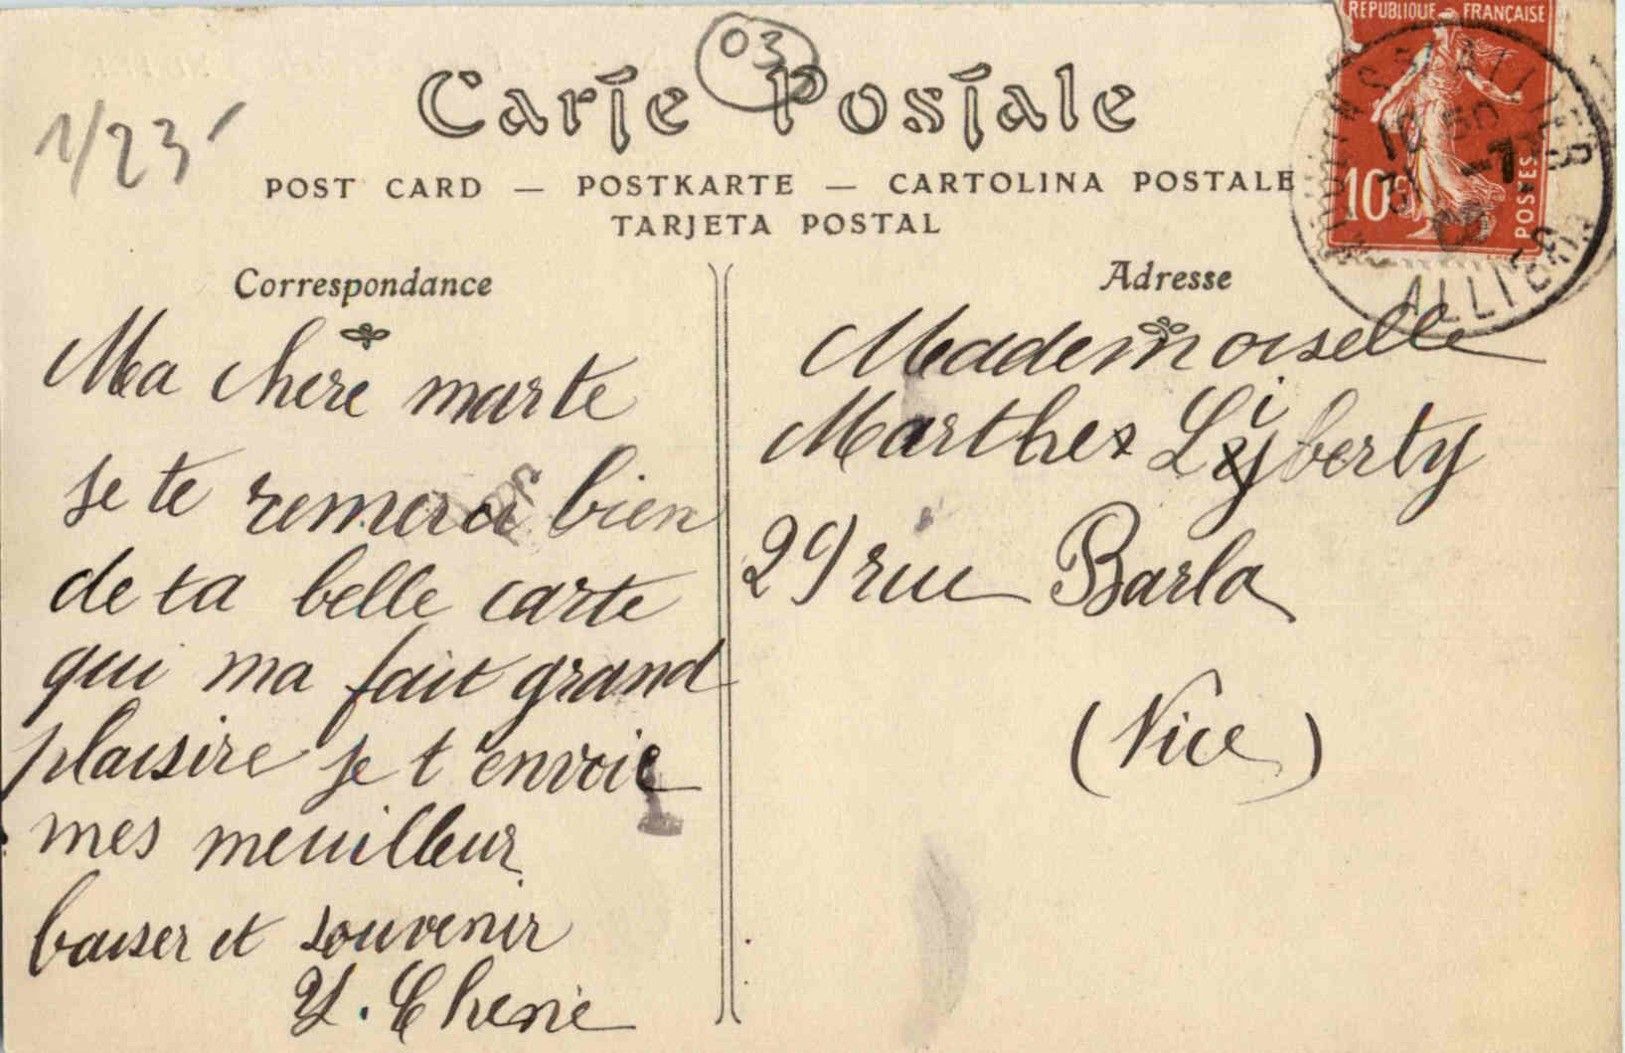 03
Carte Postale
1/23
POST CARD — POSTKARTE — CARTOLINA POSTALE
TARJETA POSTAL
REPUBLIQUE FRANÇAISE
10c
POSTES
ALLIER
10 50
31 -7
ALLIER
Correspondance
Ma chere marte
je te remerci bien
de ta belle carte
qui ma fait grand
plaisire je t'envoie
mes meuilleur
baiser et souvenir
Y. Chene
Adresse
Mademoiselle
Marthe Liberty
29 rue Barla
(Nice)